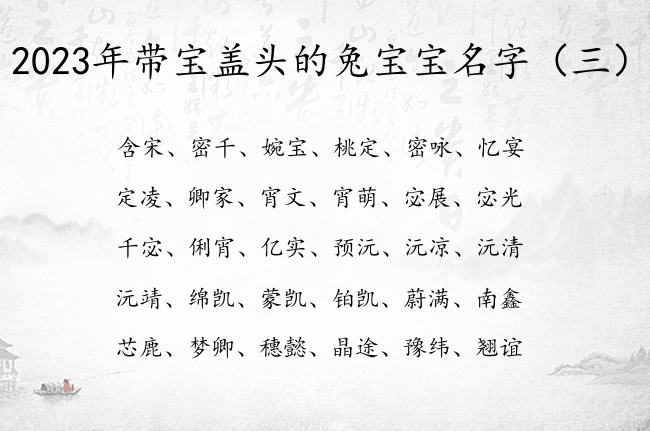 2023年带宝盖头的兔宝宝名字（三）
含宋、密千、婉宝、桃定、密咏、忆宴
定凌、卿家、宵文、宵萌、宓展、宓光
千宓、俐宵、亿实、预沅、沅凉、沅清
沅靖、绵凯、蒙凯、铂凯、蔚满、南鑫
芯鹿、梦卿、穗懿、晶途、豫纬、翘谊